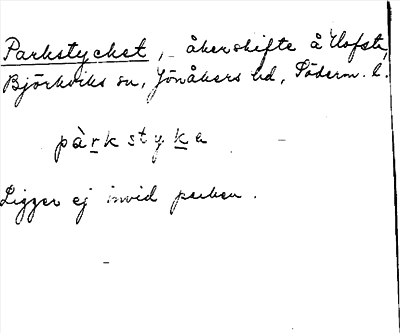 Parkstycket, åkerskifte å Hofsta,
Björkviks sn, Jönåkers hd, Söderm. l.
pàrkstyka
Ligger ej invid parken.